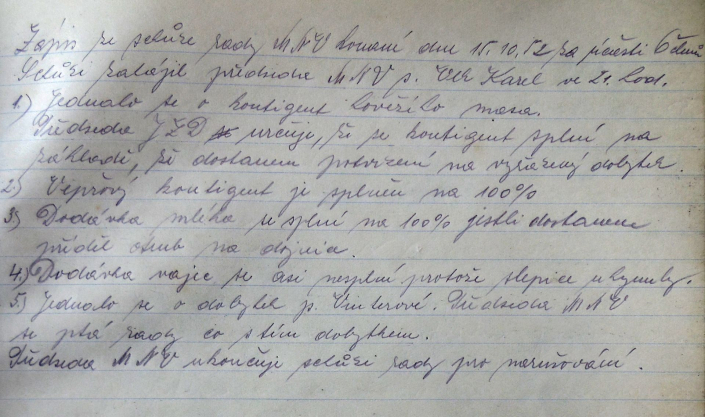 Zápis ze schůze rady MNV konané dne 15.10.52 za účasti 6 členů
Schůzi zahájil předseda MNV p. Vlk Karel ve 20. hod.
1.) Jednalo se o kontigent hovězího masa.
Předseda JZD určuje, že se kontigent splní na
základě, že dostanem potvrzení na vyřazený dobytek.
2) Vepřový kontigent je splněn na 100%
3) Dodávka mléka se splní na 100% jestli dostaneme
příděl otrub na dojnice.
4.) Dodávka vajec se asi nesplní protože slepice uhynuly.
5.) Jednalo se o dobytek p. Vinterové. Předseda MNV
se ptá rady co s tím dobytkem.
Předseda MNV ukončuje schůzi rady pro nerušování.